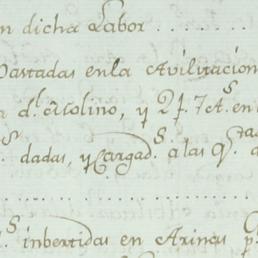 n dicha Labor ........
Vastadas enla Avilitacion
a d.l molino, y 2 p.s 7 A.s en
s dadas, y Cargad.s a las q.s
..............
.s inbertidas en Arinas